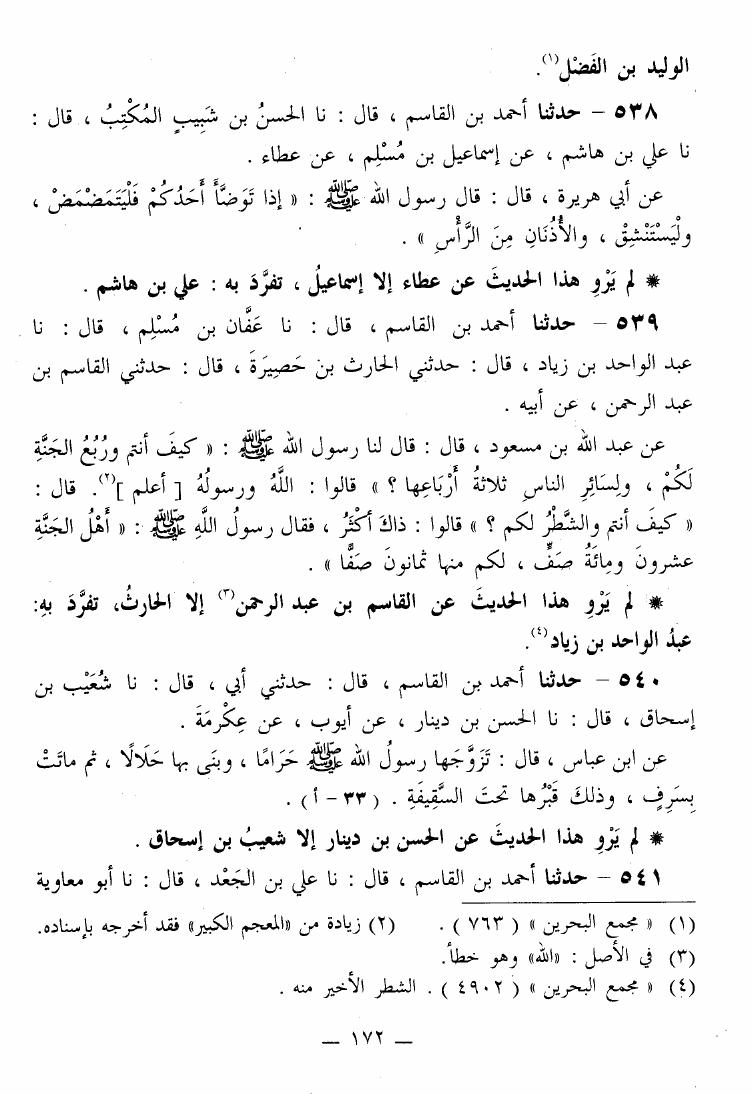 الوليد بن الفَضْل(١).
٥٣٨ – حدثنا أحمد بن القاسم ، قال : نا الحسنُ بن شَبِيبٍ المُكْتِبُ ، قال :
نا علي بن هاشم ، عن إسماعيل بن مُسْلِم ، عن عطاء .
عن أبي هريرة ، قال : قال رسول الله ﷺ : « إذا تَوَضَّأَ أَحَدُكُمْ فَلْيَتَمَضْمَضْ ،
ولْيَسْتَنْشِقْ ، والأُذُنَانِ مِنَ الرَّأْسِ » .
* لم يَرْوِ هذا الحديثَ عن عطاء إلا إسماعيلُ ، تفرَّدَ به : علي بن هاشم .
٥٣٩ – حدثنا أحمد بن القاسم ، قال : نا عَفَّان بن مُسْلِم ، قال : نا
عبد الواحد بن زياد ، قال : حدثني الحارث بن حَصِيرَةَ ، قال : حدثني القاسم بن
عبد الرحمن ، عن أبيه .
عن عبد الله بن مسعود ، قال : قال لنا رسول الله ﷺ : « كيفَ أنتم ورُبُعُ الجَنَّةِ
لَكُمْ ، ولِسَائِرِ الناسِ ثلاثةُ أَرْبَاعِها ؟ » قالوا : اللَّهُ ورسولُهُ [ أعلم ](٢). قال :
« كيفَ أنتم والشَّطْرُ لكم ؟ » قالوا : ذاكَ أكْثَرُ ، فقال رسولُ اللَّهِ ﷺ : « أَهْلُ الجَنَّةِ
عشرونَ ومِائَةُ صَفٍّ ، لكم منها ثمانونَ صَفًّا » .
* لم يَرْوِ هذا الحديثَ عن القاسم بن عبد الرحمن(٣) إلا الحارثُ، تفرَّدَ بهِ:
عبدُ الواحد بن زياد(٤).
٥٤٠ – حدثنا أحمد بن القاسم ، قال : حدثني أبي ، قال : نا شُعَيْب بن
إسحاق ، قال : نا الحسن بن دينار ، عن أيوب ، عن عِكْرِمَةَ .
عن ابن عباس ، قال : تَزَوَّجَها رسولُ الله ﷺ حَرَامًا ، وبنَى بها حَلَالًا ، ثم ماتَتْ
بِسَرِفٍ ، وذلكَ قَبْرُها تحتَ السَّقِيفَةِ . ( ٣٣ – أ ) .
* لم يَرْوِ هذا الحديثَ عن الحسن بن دينار إلا شعيبُ بن إسحاق .
٥٤١ – حدثنا أحمد بن القاسم ، قال : نا علي بن الجَعْد ، قال : نا أبو معاوية
(١) « مجمع البحرين » ( ٧٦٣ ) . (٢) زيادة من «المعجم الكبير» فقد أخرجه بإسناده.
(٣) في الأصل : «الله» وهو خطأ.
(٤) « مجمع البحرين » ( ٤٩٠٢ ) . الشطر الأخير منه .
— ١٧٢ —